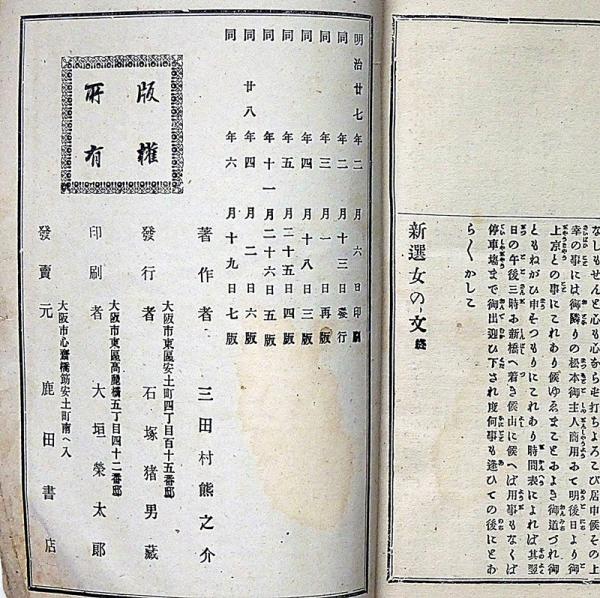 なしもせんと心も心ならせ打ちよろこび居申候その上
幸の事には御隣りの松本御主人商用あて明後日より御
上京との事にこれあり候ゆゑまことおよき御道づれ御
ともねがひ申そつもりにこれあり時間表によれば其翌
日の午後三時お新橋へ着き候由に候へば用事もなくば
停車塲まで御出迎ひ下され度何事も逢ひての後にとあ
らくかして
新選女の文 終
明治廿七年二月六日印刷
同年二月十三日發行
同年三月一日再版
同年四月十八日三版
同年五月二十五日四版
同年十一月二十六日五版
同廿八年四月二日六版
同年六月十九日七版
版權
所有
著作者 三田村熊之介
大阪市東區安土町四丁目百十五番邸
發行者 石塚猪男藏
大阪市東區高麗橋五丁目四十二番邸
印刷者 大垣榮太郎
大阪市心齋橋筋安土町南へ入
發賣元 鹿田書店